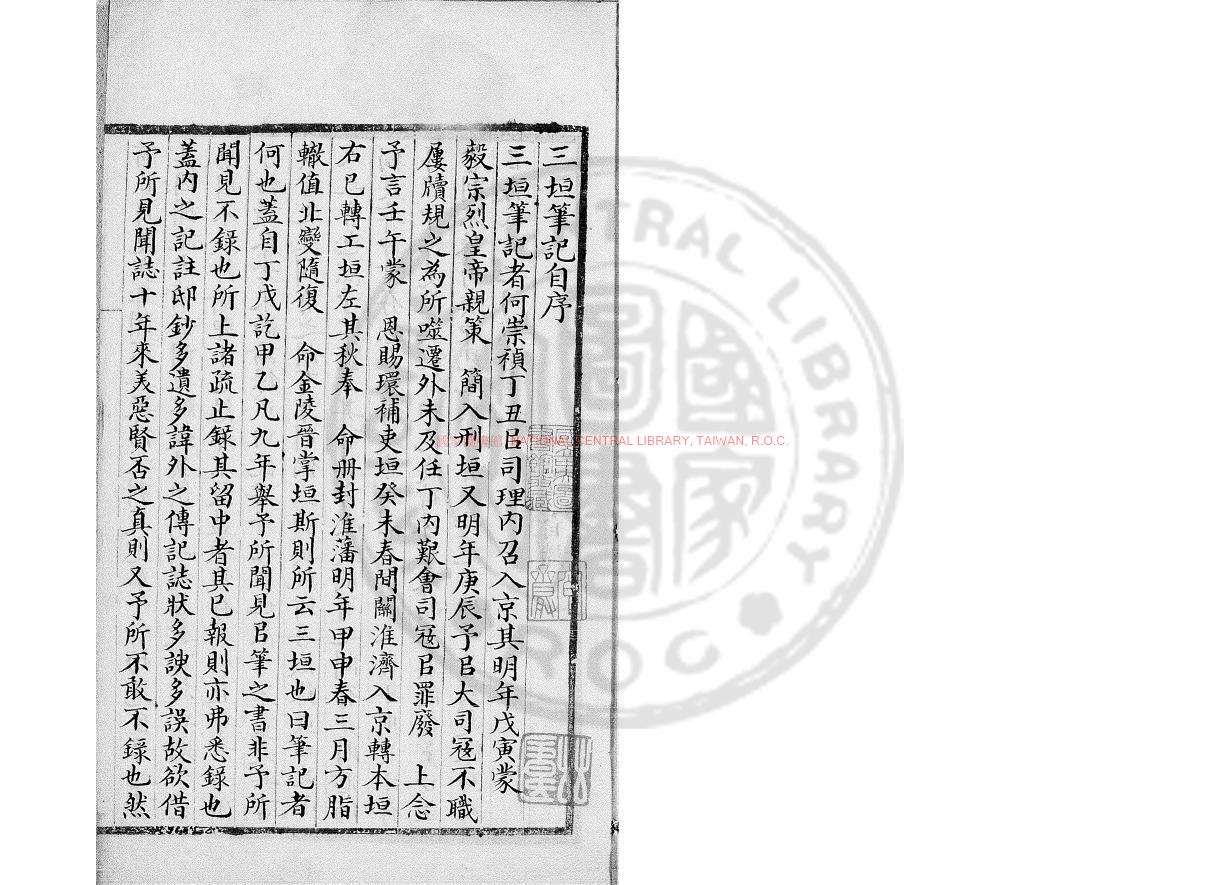 三垣筆記自序
三垣筆記者何崇禎丁丑㠯司理内召入京其明年戊寅蒙
毅宗烈皇帝親策　簡入刑垣又明年庚辰予㠯大司寇不職
屢牘規之為所噬遷外未及任丁内艱會司寇㠯罪廢　上念
予言壬午蒙　恩賜環補吏垣癸未春間關淮濟入京轉本垣
右已轉工垣左其秋奉　命册封淮藩明年甲申春三月方脂
轍值北變隨復　命金陵晉掌垣斯則所云三垣也曰筆記者
何也蓋自丁戊訖甲乙凡九年舉予所聞見㠯筆之書非予所
聞見不錄也所上諸疏止錄其留中者其已報則亦弗悉錄也
蓋内之記註邸鈔多遺多諱外之傳記誌狀多諛多誤故欲借
予所見聞誌十年來美惡賢否之真則又予所不敢不錄也然
國家圖書館 NATIONAL CENTRAL LIBRARY, TAIWAN, R.O.C.
CENTRAL LIBRARY
R O C